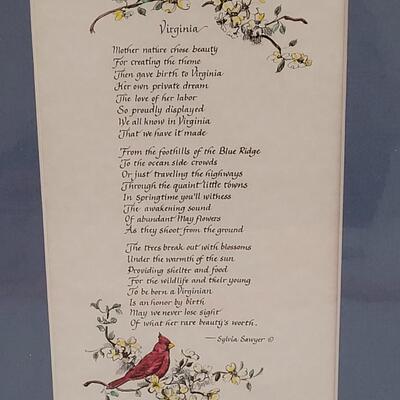 Virginia
Mother nature chose beauty
For creating the theme
Then gave birth to Virginia
Her own private dream
The love of her labor
So proudly displayed
We all know in Virginia
That we have it made
From the foothills of the Blue Ridge
To the ocean side crowds
Or just traveling the highways
Through the quaint little towns
In Springtime you'll witness
The awakening sound
Of abundant May flowers
As they shoot from the ground
The trees break out with blossoms
Under the warmth of the sun
Providing shelter and food
For the wildlife and their young
To be born a Virginian
Is an honor by birth
May we never lose sight
Of what her rare beauty's worth.
— Sylvia Sawyer ©